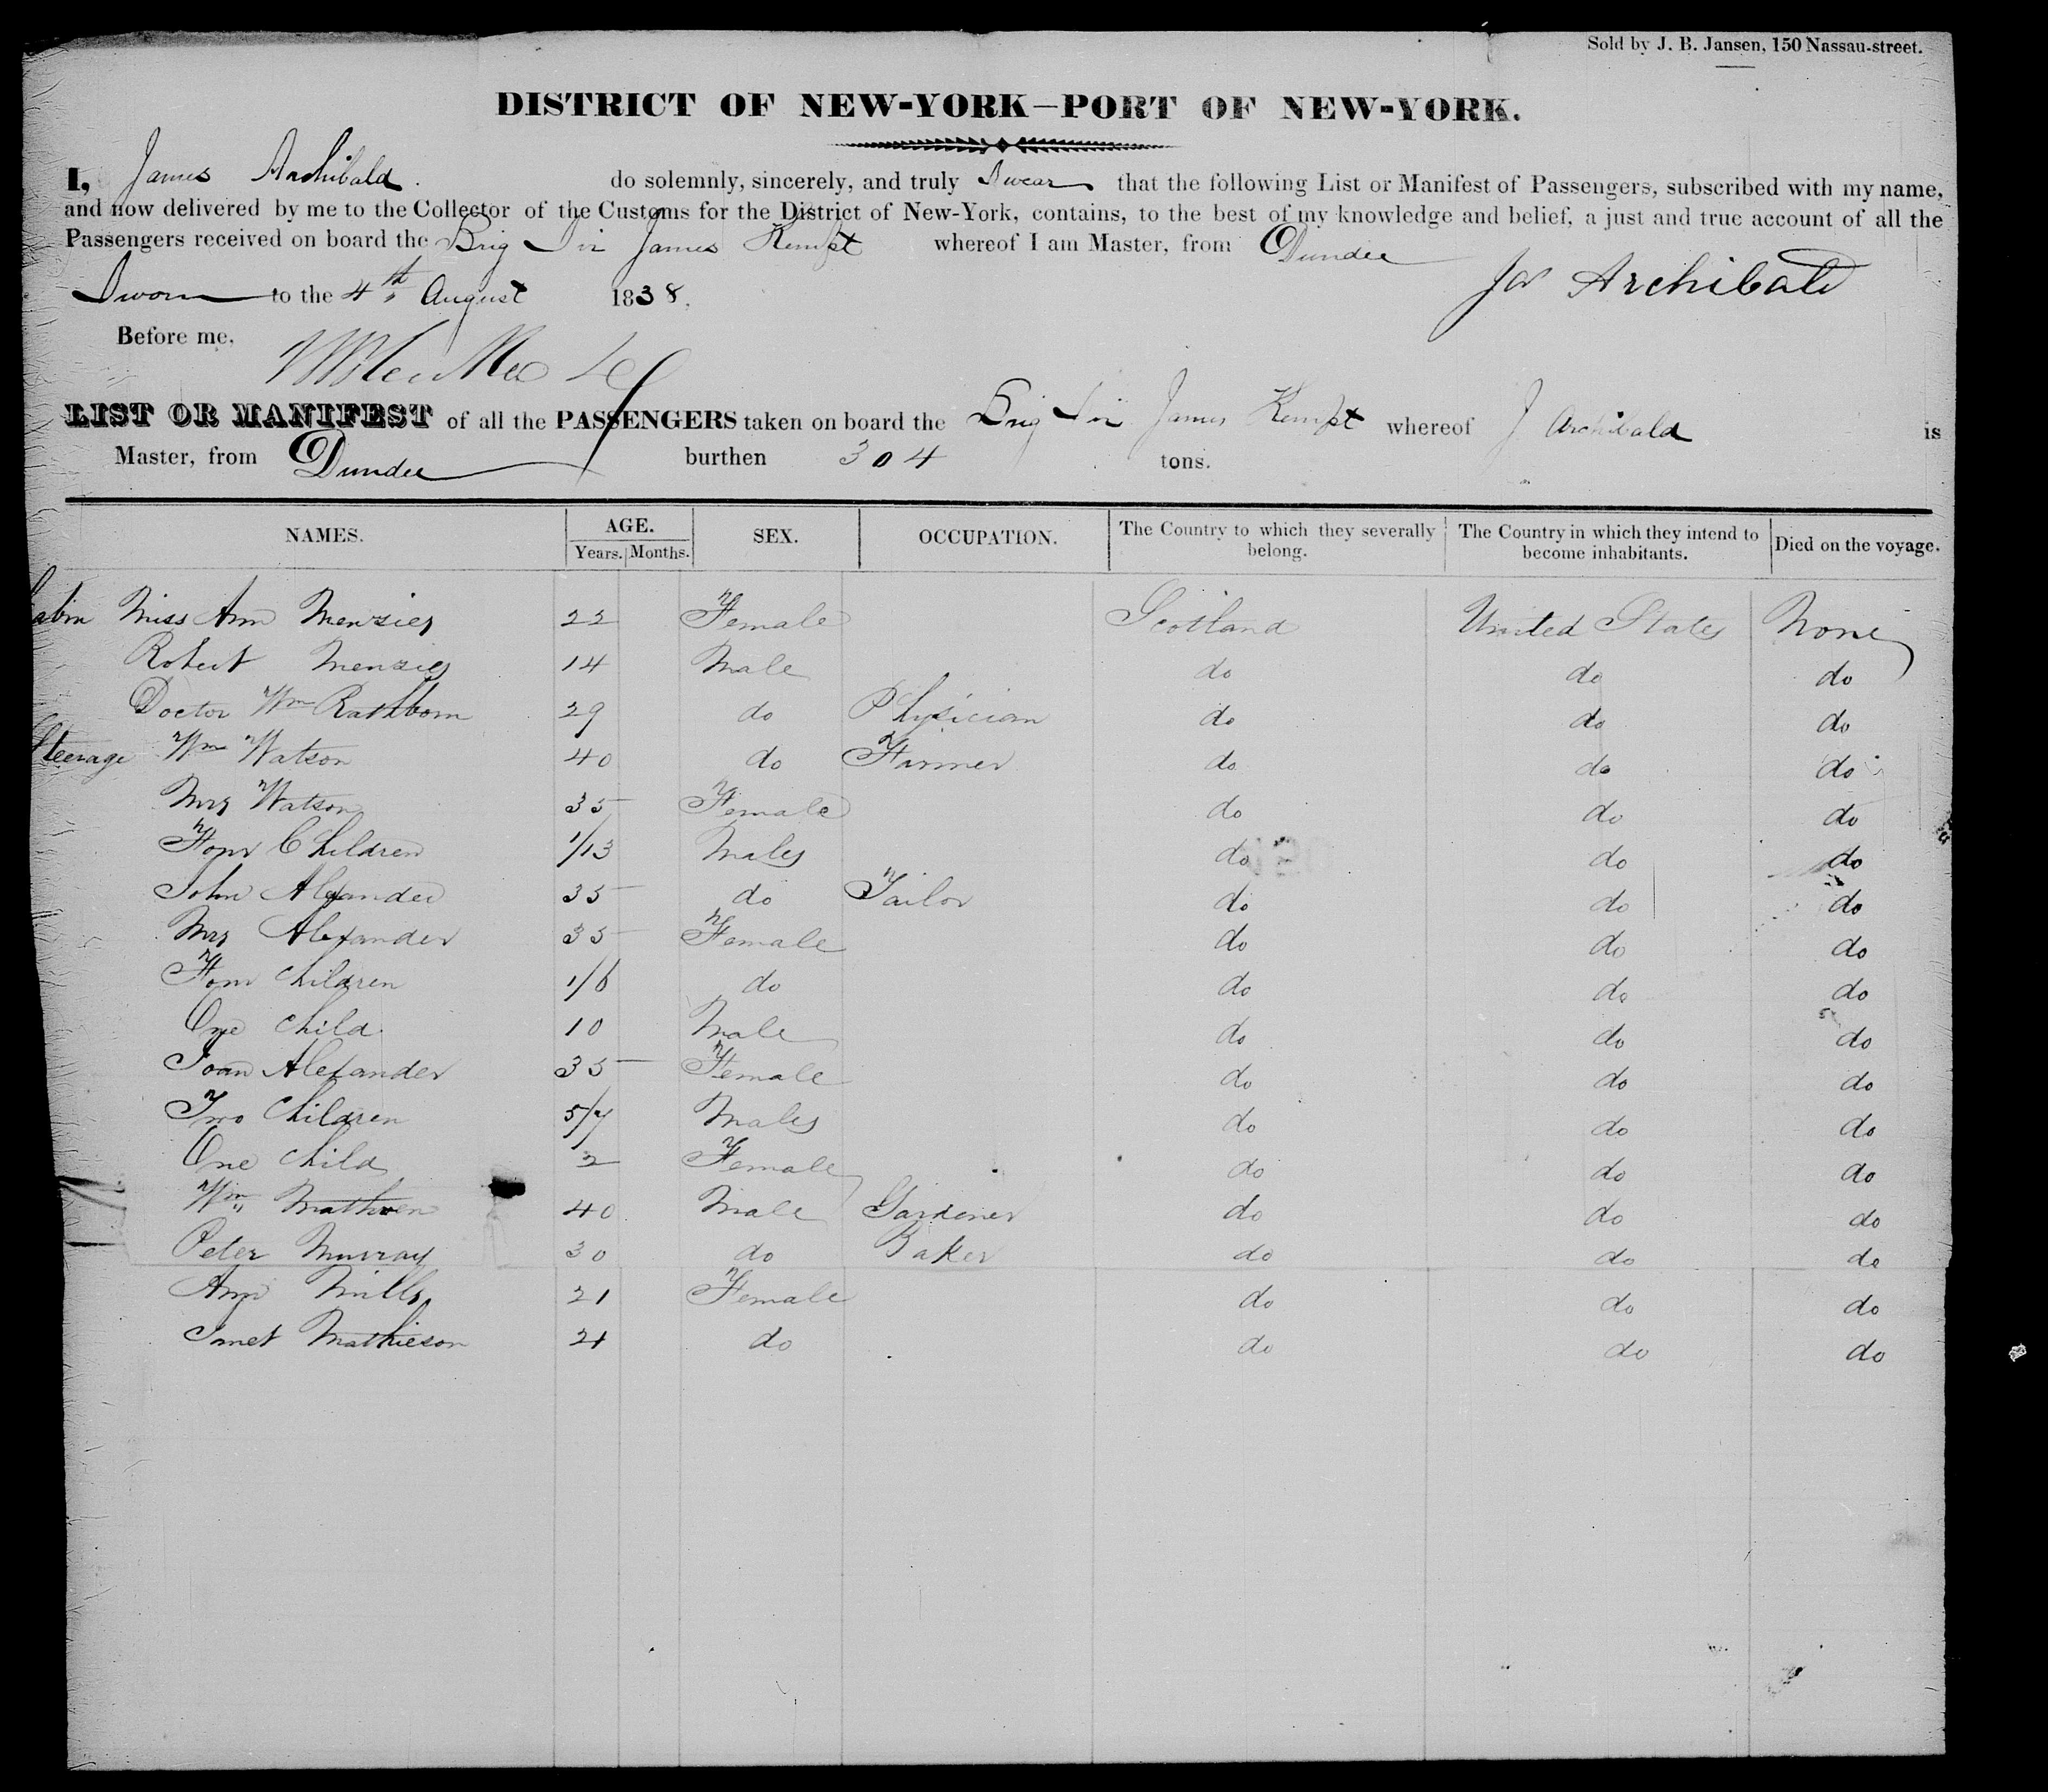 Sold by J. B. Jansen, 150 Nassau-street.
DISTRICT OF NEW-YORK—PORT OF NEW-YORK.
I, James Archibald do solemnly, sincerely, and truly Swear that the following List or Manifest of Passengers, subscribed with my name,
and now delivered by me to the Collector of the Customs for the District of New-York, contains, to the best of my knowledge and belief, a just and true account of all the
Passengers received on board the Brig Sir James Kempt whereof I am Master, from Dundee
Sworn to the 4th August 1838. Jas Archibald
Before me,
LIST OR MANIFEST of all the PASSENGERS taken on board the Brig Sir James Kempt whereof J Archibald is
Master, from Dundee burthen 304 tons.
NAMES. AGE. Years. Months. SEX. OCCUPATION. The Country to which they severally belong. The Country in which they intend to become inhabitants. Died on the voyage.
Cabin Miss Ann Menzies 22 Female Scotland United States None
Robert Menzies 14 Male do do do
Doctor Wm Rathborn 29 do Physician do do do
Steerage Wm Watson 40 do Farmer do do do
Mrs Watson 35 Female do do do
Four Children 1/13 Males do do do
John Alexander 35 do Tailor do do do
Mrs Alexander 35 Female do do do
Four Children 1/6 do do do do
One Child 10 Male do do do
Joan Alexander 35 Female do do do
Two Children 5/7 Males do do do
One Child 2 Female do do do
Wm Mathven 40 Male Gardener do do do
Peter Murray 30 do Baker do do do
Ann Mills 21 Female do do do
Janet Mathieson 21 do do do do